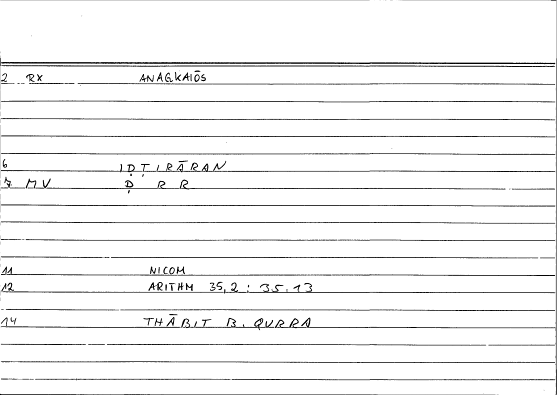 2 RX ANAGKAIŌS
6 IḌṬIRĀRAN
7 MV Ḍ R R
11 NICOM
12 ARITHM 35,2 : 35.13
14 THĀBIT B. QURRA